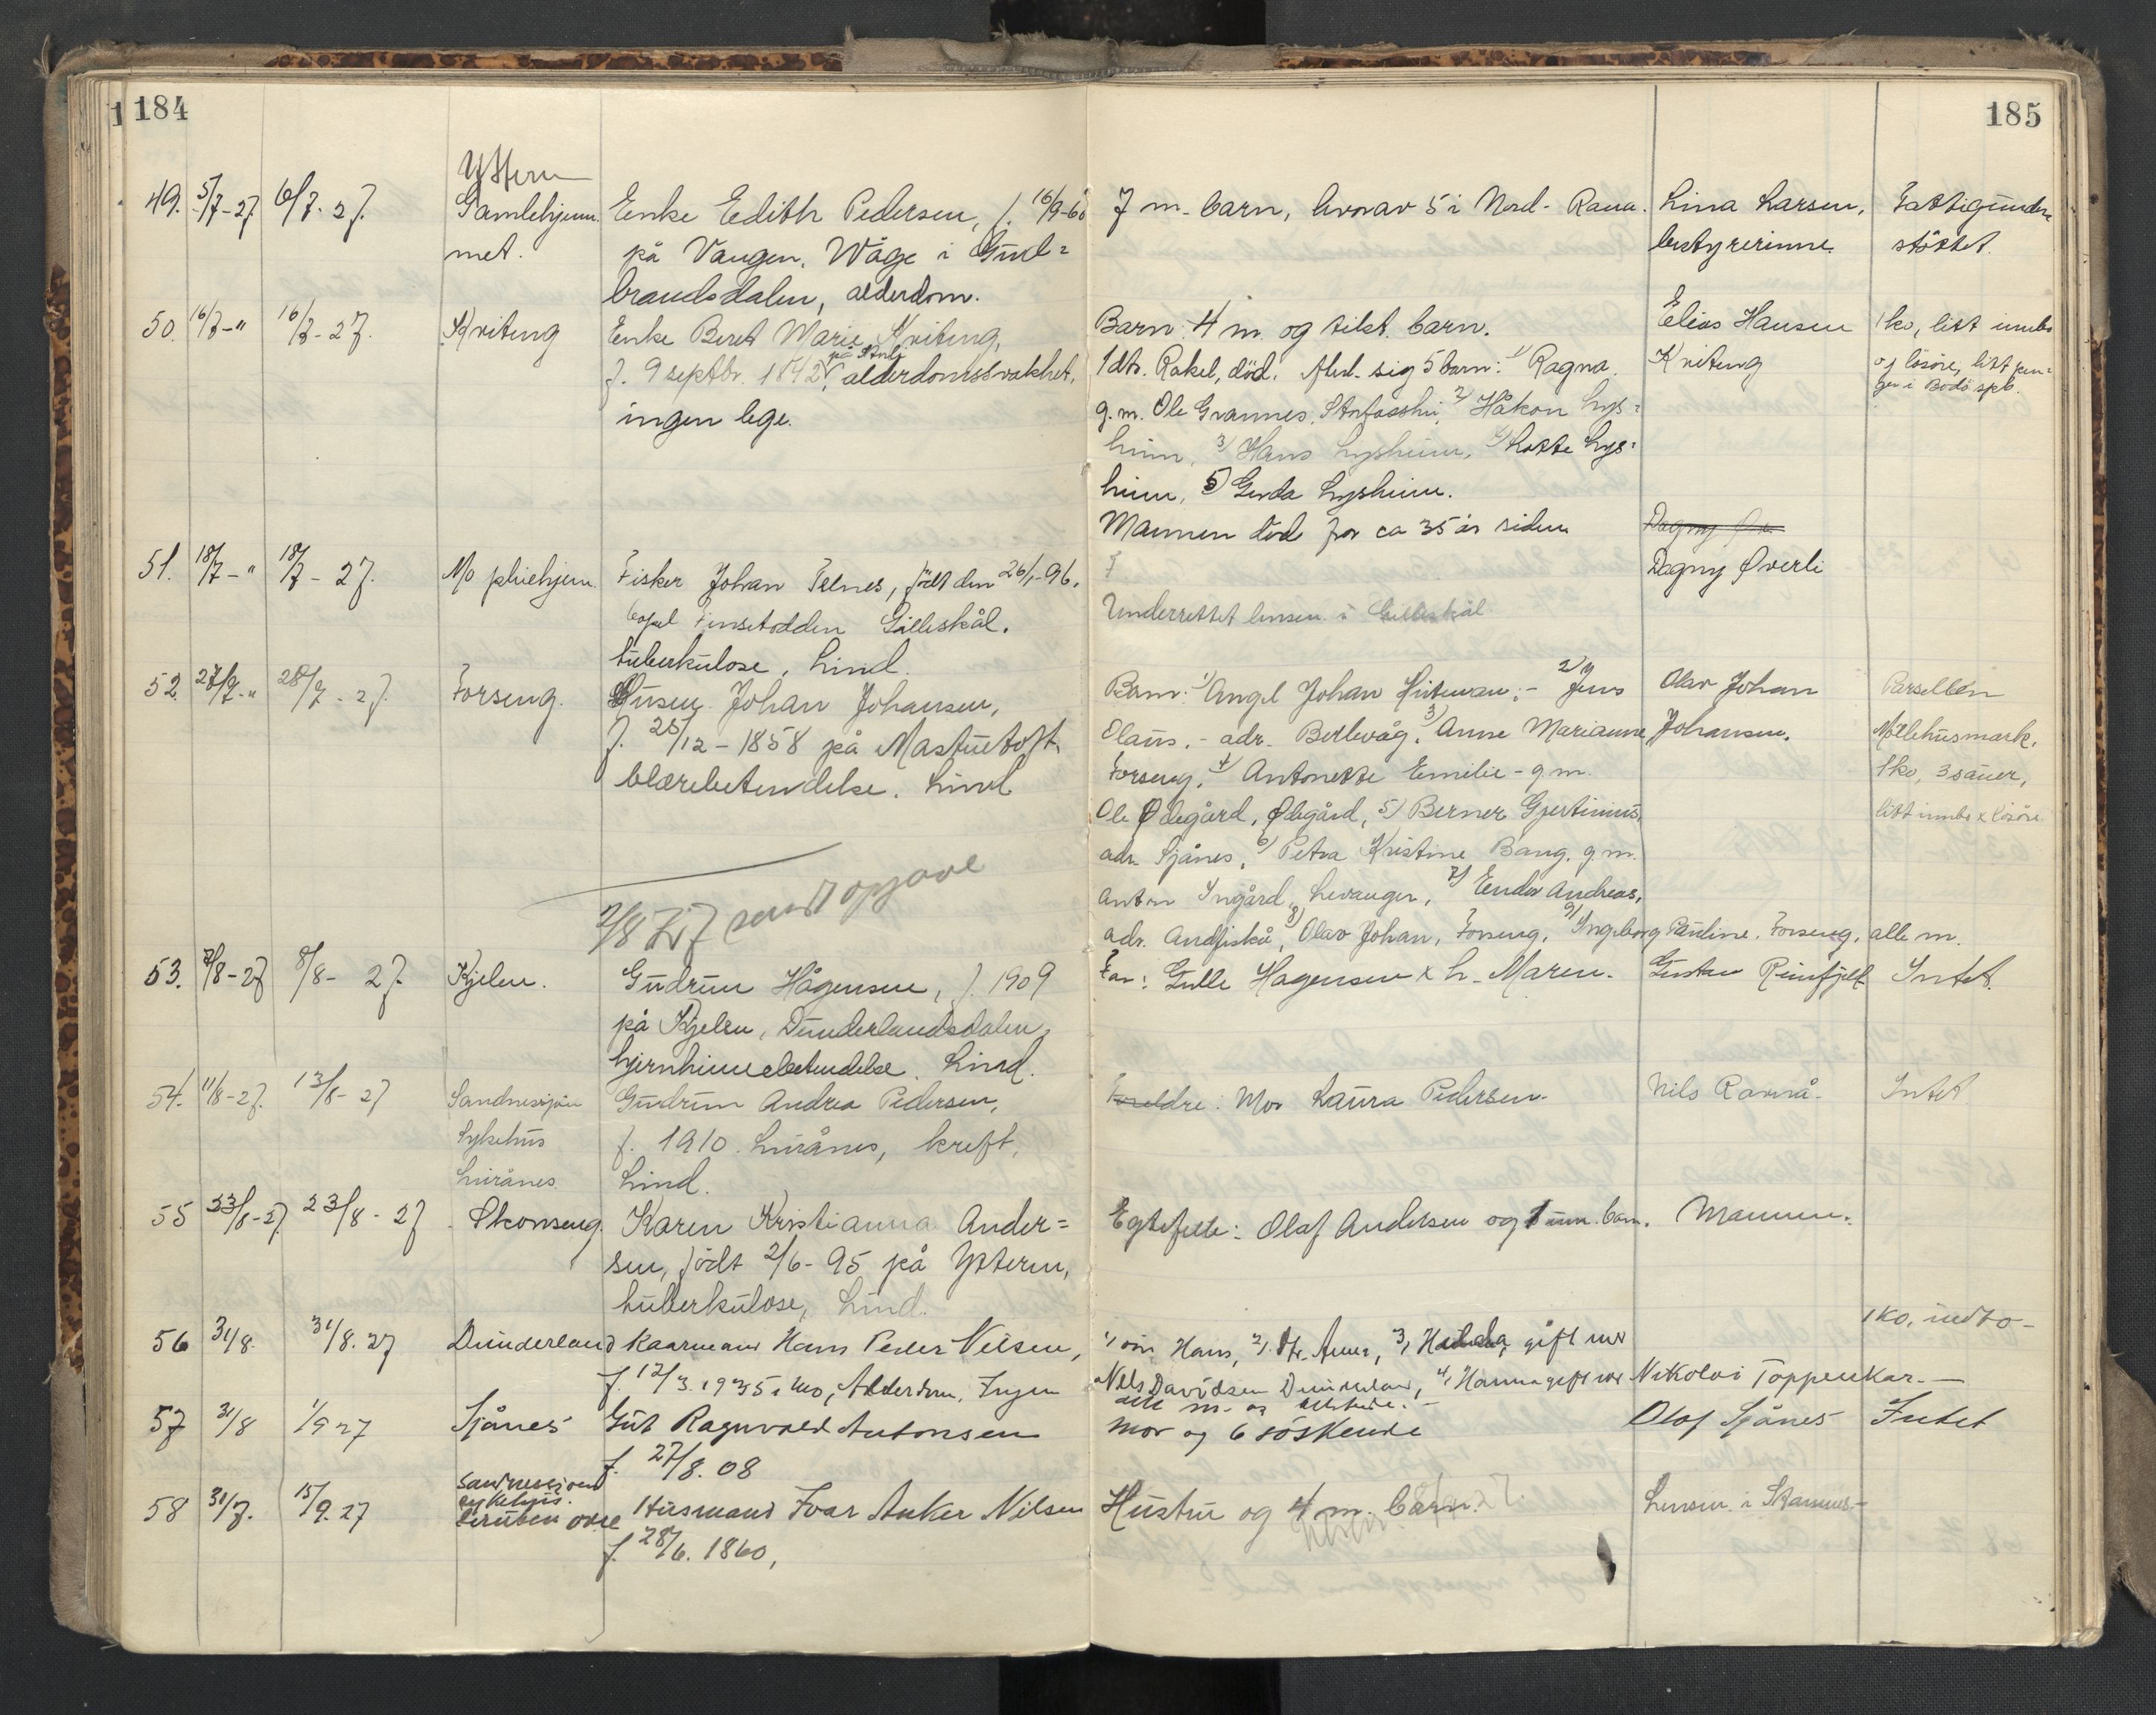 184
185
Yttern
49. 5/7-27. 6/7-27. Gamlehjem- Enke Edith Pedersen, f. 16/9-60 7 m. barn, hvorav 5 i Nord-Rana. Lina Larsen, Fattigunder-
met. på Vangen, Wåge i Gud- bestyrerinne. støttet.
brandsdalen, alderdom.
50. 16/7-" 16/7-27. Kviteng Enke Beret Marie Kviteng, Barn: 4 m. og tilst. barn. Elias Hansen 1 ko, litt innbo
f. 9 septbr. 1842, alderdomssvakhet, 1 dtr. Rakel, død. sig 5 barn: 1/ Ragna Kviteng og løsøre, litt pen-
ingen lege. g.m. Ole Grannes, 2/ Håkon Lys- ger i Bodø spb.
heim, 3/ Hans Lysheim, 4/ Lotte Lys-
heim, 5) Gerda Lysheim.
Mannen død for ca 35 år siden
51. 18/7-" 18/7-27. Mo pleiehjem. Fisker Johan Telnes, født den 26/1-96. ? Dagny Øverli
Finsetodden Gilleskål. Underrettet lensm. i Gilleskål
tuberkulose, Lind.
52. 27/7-" 28/7-27. Forseng. Husm. Johan Johansen, Barn: 1/ Angel Johan Hileman:- 2/ Jens Olav Johan Parsellen
f. 25/12-1858 på Mastuetoft, Olaus,- adr. Berlevåg. 3/ Anne Marianne, Johansen. Møllehusmark,
blærebetendelse. Lind Forseng, 4/ Antonette Emilie - g.m. 1 ko, 3 sauer,
Ole Ødegård, Ølegård, 5/ Berner Gjertinius, litt innbo & løsøre.
adr. Sjånes, 6/ Petra Kristine Bang, g.m.
Anton Yngård, Levanger, 7/ Ender Andreas,
2/8 27 sendt opgave
adr. Andfiskå, 8/ Olav Johan, Forseng, 9/ Ingeborg Pauline, Forseng, alle m.
53. 7/8-27 8/8-27. Kjelen. Gudrun Hågensen, f. 1909 Far: Gulle Hagensen & h. Maren. Gustav Reinfjell Intet.
på Kjelen, Dunderlandsdalen,
hjernhinnebetendelse. Lind.
54. 11/8-27. 13/8-27 Sandnessjøen Gudrun Andrea Pedersen, Foreldre: Mor Laura Pedersen. Nils Ravnå. Intet
Sykehus f. 1910. Luirånes, kreft,
Luirånes. Lind.
55 23/8-27. 23/8-27. Skonseng. Karen Kristianna Ander- Egtefelle: Olaf Andersen og 1 um. barn. Mannen.
sen, født 2/6-95 på Ytteren,
tuberkulose, Lind.
1 ko, indbo-
56 31/8. 31/8.27 Dunderland Kaarmand Hans Peder Nilsen, 1/ sön Hans, 2/ Anna, 3/ Hilda, gift med
f. 12/3. 1935 i Mo, Alderdom, Ingen Nils Davidsen Dunderland, 4/ Hanna gift med Nikolai Toppen kar.-
alle m. og tilstede.-
57 31/8 1/9 27 Sjånes Gut Ragnvald Antonsen Mor og 6 söskende Olaf Sjånes Intet
f. 27/8. 08
58 31/7. 15/9.27 Sandnessjøen sykehus. Husmand Ivar Anker Nilsen Hustru og 4 m. barn. Lensm. i Stamnes.-
f. 28/6. 1860,